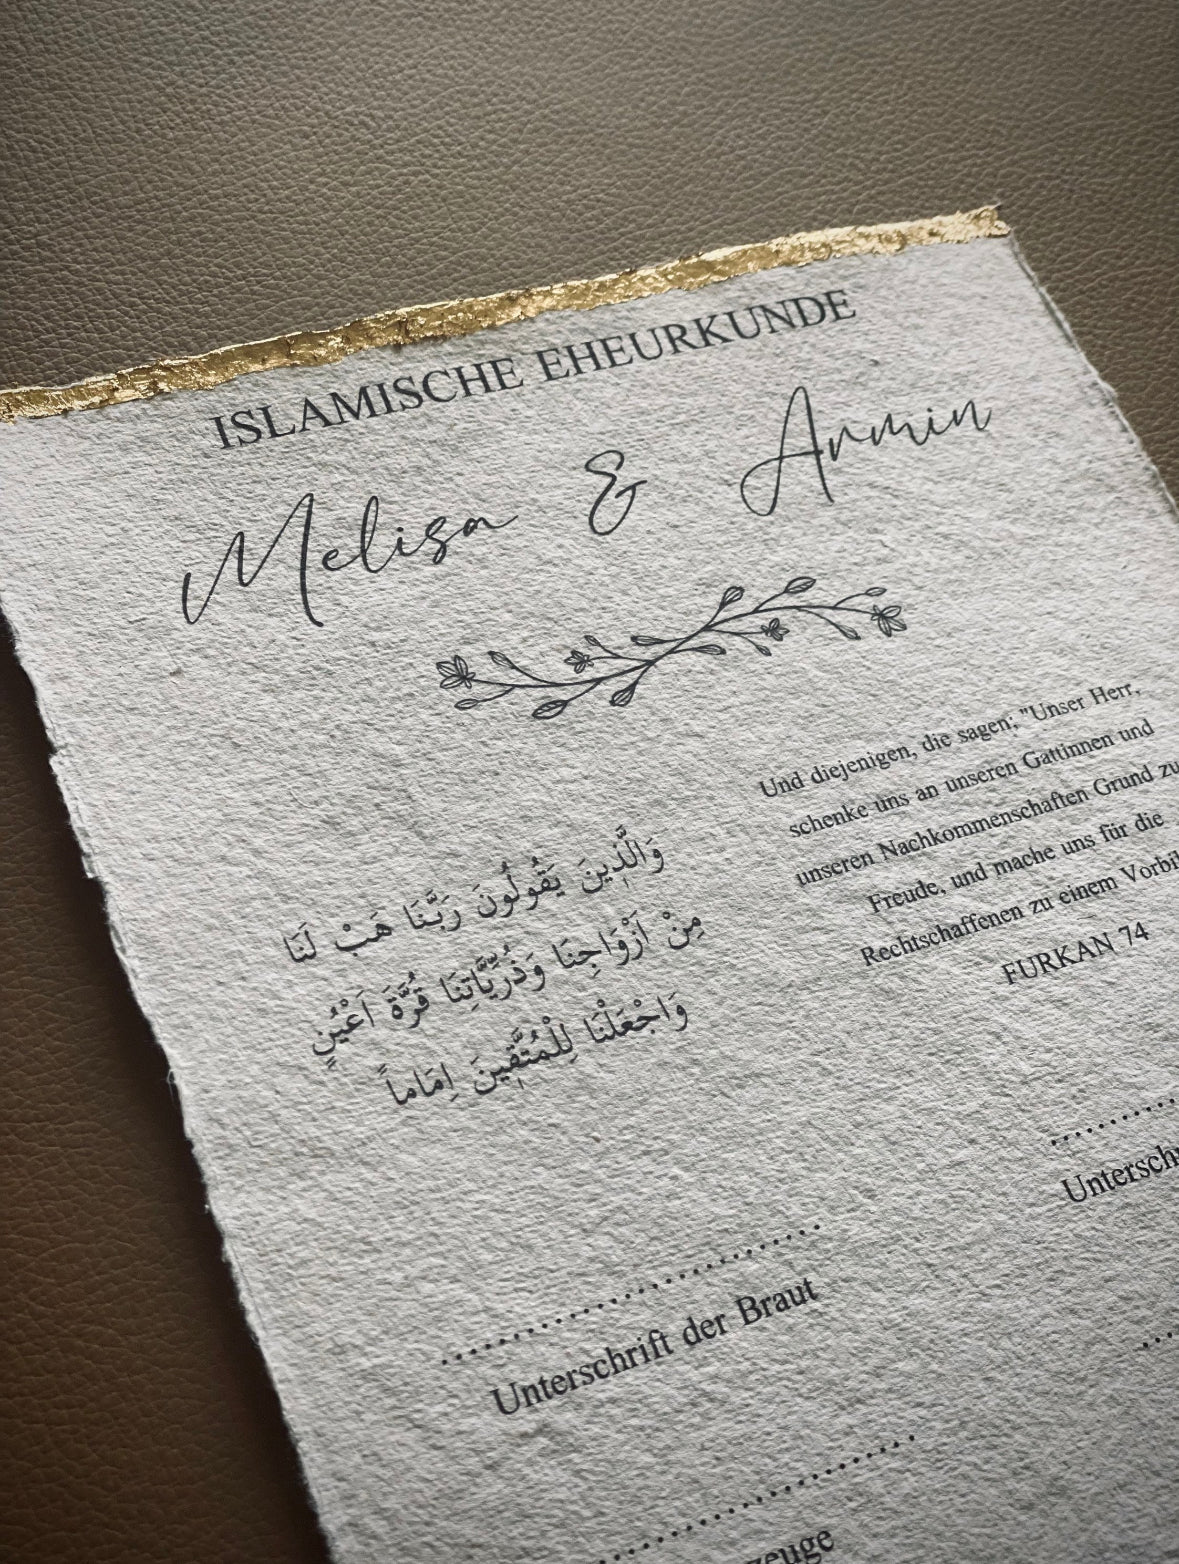 ISLAMISCHE EHEURKUNDE
Melisa & Armin
وَالَّذٖينَ يَقُولُونَ رَبَّنَا هَبْ لَنَا
مِنْ اَزْوَاجِنَا وَذُرِّيَّاتِنَا قُرَّةَ اَعْيُنٍ
وَاجْعَلْنَا لِلْمُتَّقٖينَ اِمَاماً
Und diejenigen, die sagen; "Unser Herr,
schenke uns an unseren Gattinnen und
unseren Nachkommenschaften Grund zu
Freude, und mache uns für die
Rechtschaffenen zu einem
FURKAN 74
Unterschrift der Braut